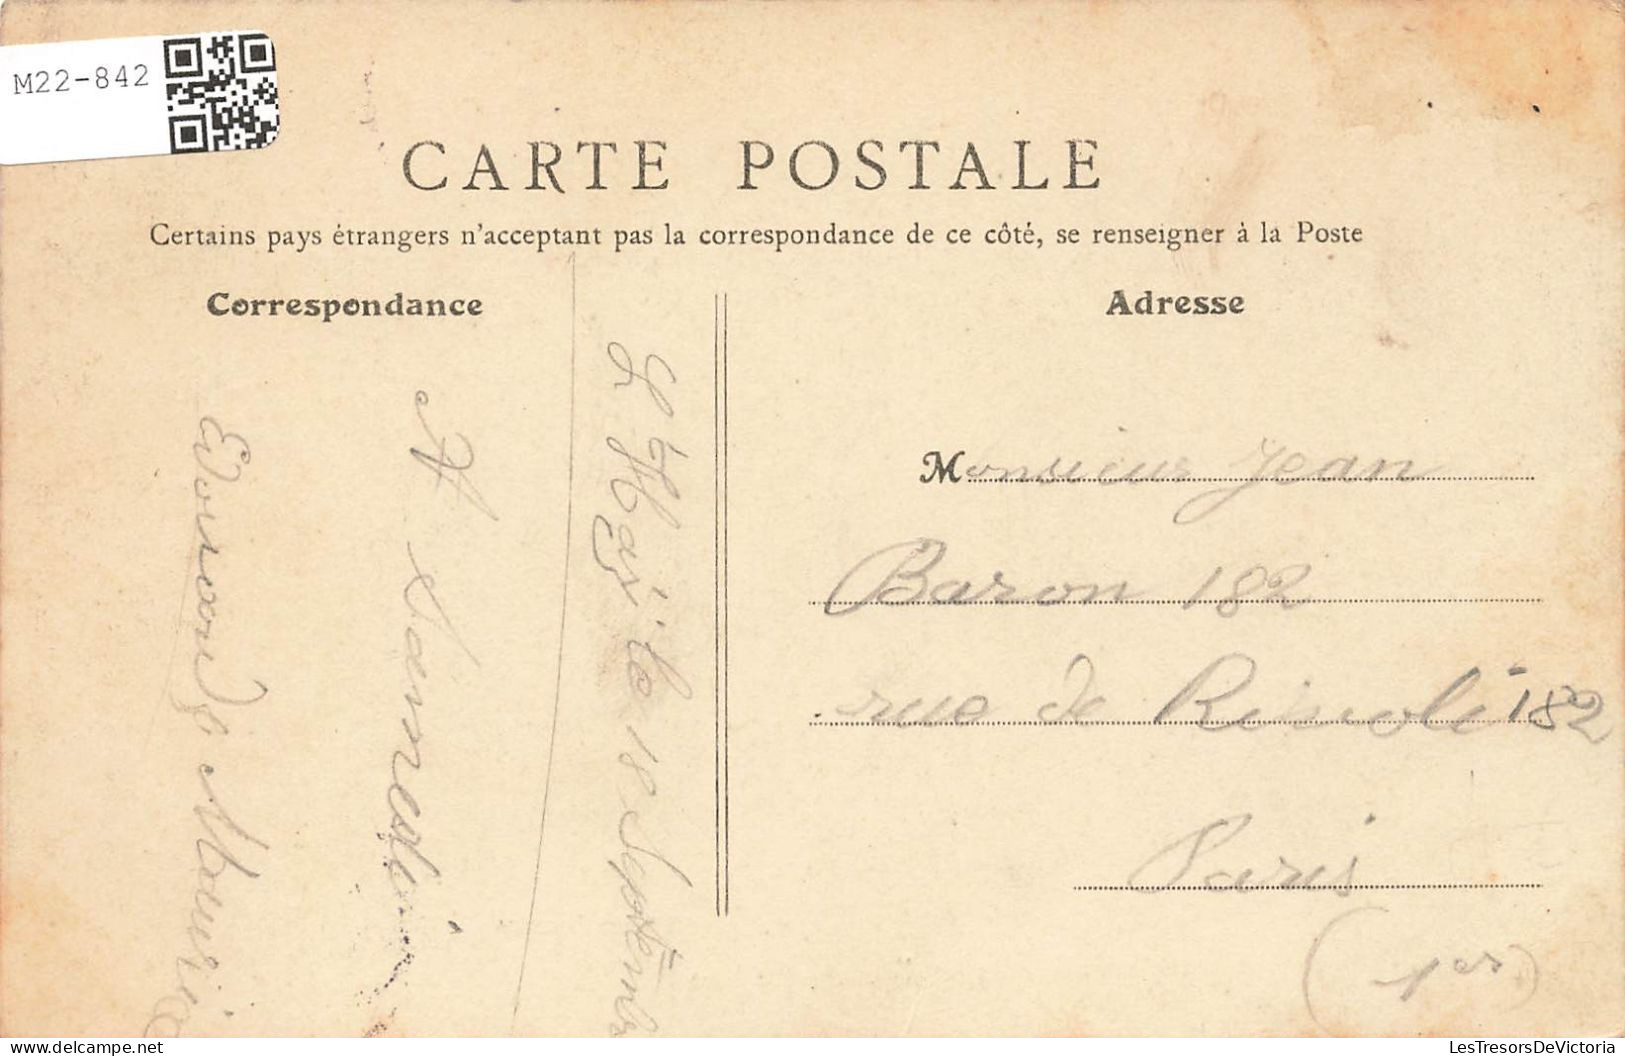 M22-842
CARTE POSTALE
Certains pays étrangers n'acceptant pas la correspondance de ce côté, se renseigner à la Poste
Correspondance
Adresse
le 18 Septembre
A Samedi
Maurice
Monsieur Jean
Baron 182
rue de Rivoli 182
Paris
(1er)
LesTresorsDeVictoria